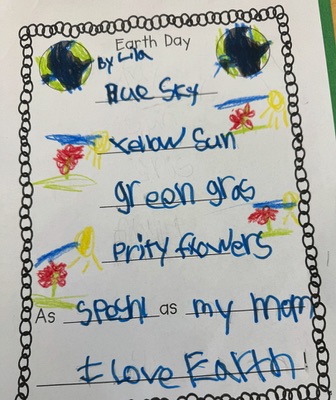 Earth Day
By Lila
Blue Sky
Yellow Sun
green gras
prity flowers
As speshl as my mom
I love Earth!